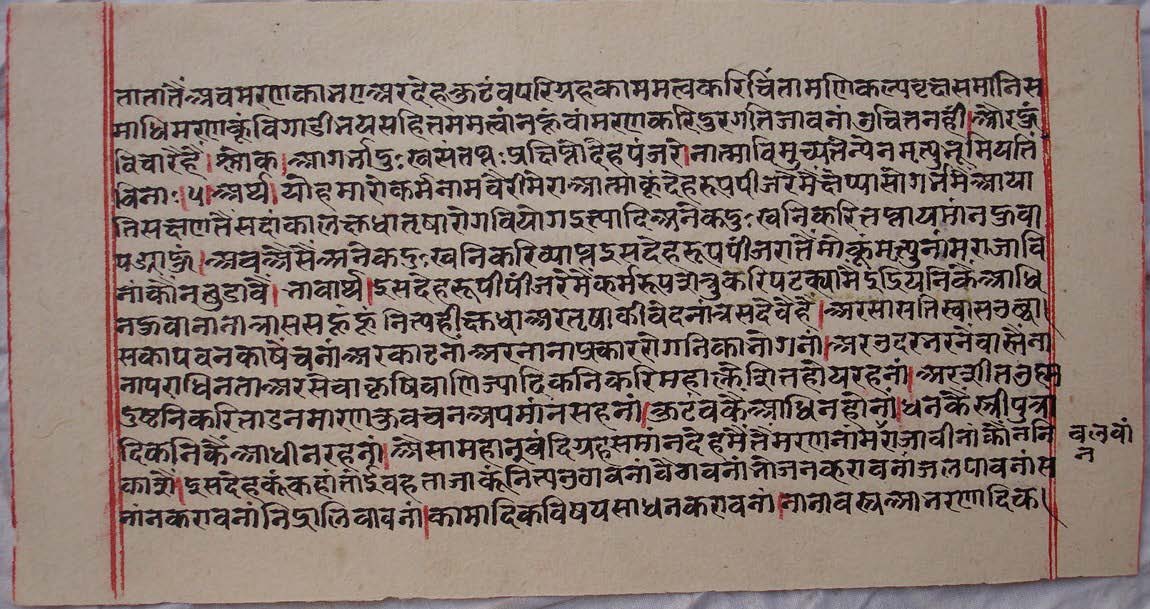 तातातैंअवमरणकानयअरदेहकुटंवपरिग्रहकाममत्वकरिचिंतामणिकल्पवृक्षसमानिस
माधिमरणकूंविगाडीनयसहितममत्वांनहूंवांमरणकरिदुरगतिजावनांउचितनहीं।औरहूं
विचारैहैं।श्लोक।आगर्भादुःखसंतप्तःप्रक्षिप्तोदेहपंजरे।नात्माविमुच्यतेन्येनमृत्युभूमिपतिं
विनाः।५।अर्थ।योहमारोकर्मनामवैरीमेराआत्माकूंदेहरूपपींजरैमैंक्षेप्यासोगर्भमैंआया
तिसक्षणतैंसदांकालक्षुधातृषारोगवियोगइत्यादिअनेकदुःखनिकरितप्तायमांनहूवा
पड्याहूं।अवअैसैंअनेकदुःखनिकरिव्याप्तइसदेहरूपपींजरातैंमोकूंमृत्युनांमराजावि
नांकौनछुडावै।भावार्थ।इसदेहरूपीपींजरेमैंकर्मरूपशत्रुकरिपटक्यामैंइंद्रियनिकेंआधि
नहूवानानात्राससहूंहूंनित्यहीक्षुधाअरतृषाकीवेदनांत्रासदेवैहैं।अरसासतिस्वासउछ्वा
सकापवनकाषैंचनांअरकाटनांअरनानाप्रकाररोगनिकाभोगनां।अरउदरभरनेंवास्तैंनां
नापराधिनताअरसेवाकृषिवाणिज्यादिकनिकरिमहाक्लेशितहोयरहनां।अरशीतउष्ण
दुष्टनिकरिताडनमारणकुवचनअपमांनसहनां।कुटंवकैंआधिनहोनां।धनकैंस्त्रीपुत्रा
दिकनिकैंआधीनरहनां।अैसामहानवंदिग्रहसमांनदेहमैंतैंमरणनांमराजाविनांकौननि
वलवां
न
काशै।इसदेहकूंकहांतांईवहताजाकूंनित्यउगवनांवैगवनांभोजनकरावनांजलपावनांस
नांनकरावनांनिद्रालिवावनां।कामादिकविषयसाधनकरावनां।नानावस्त्रआभरणादिक